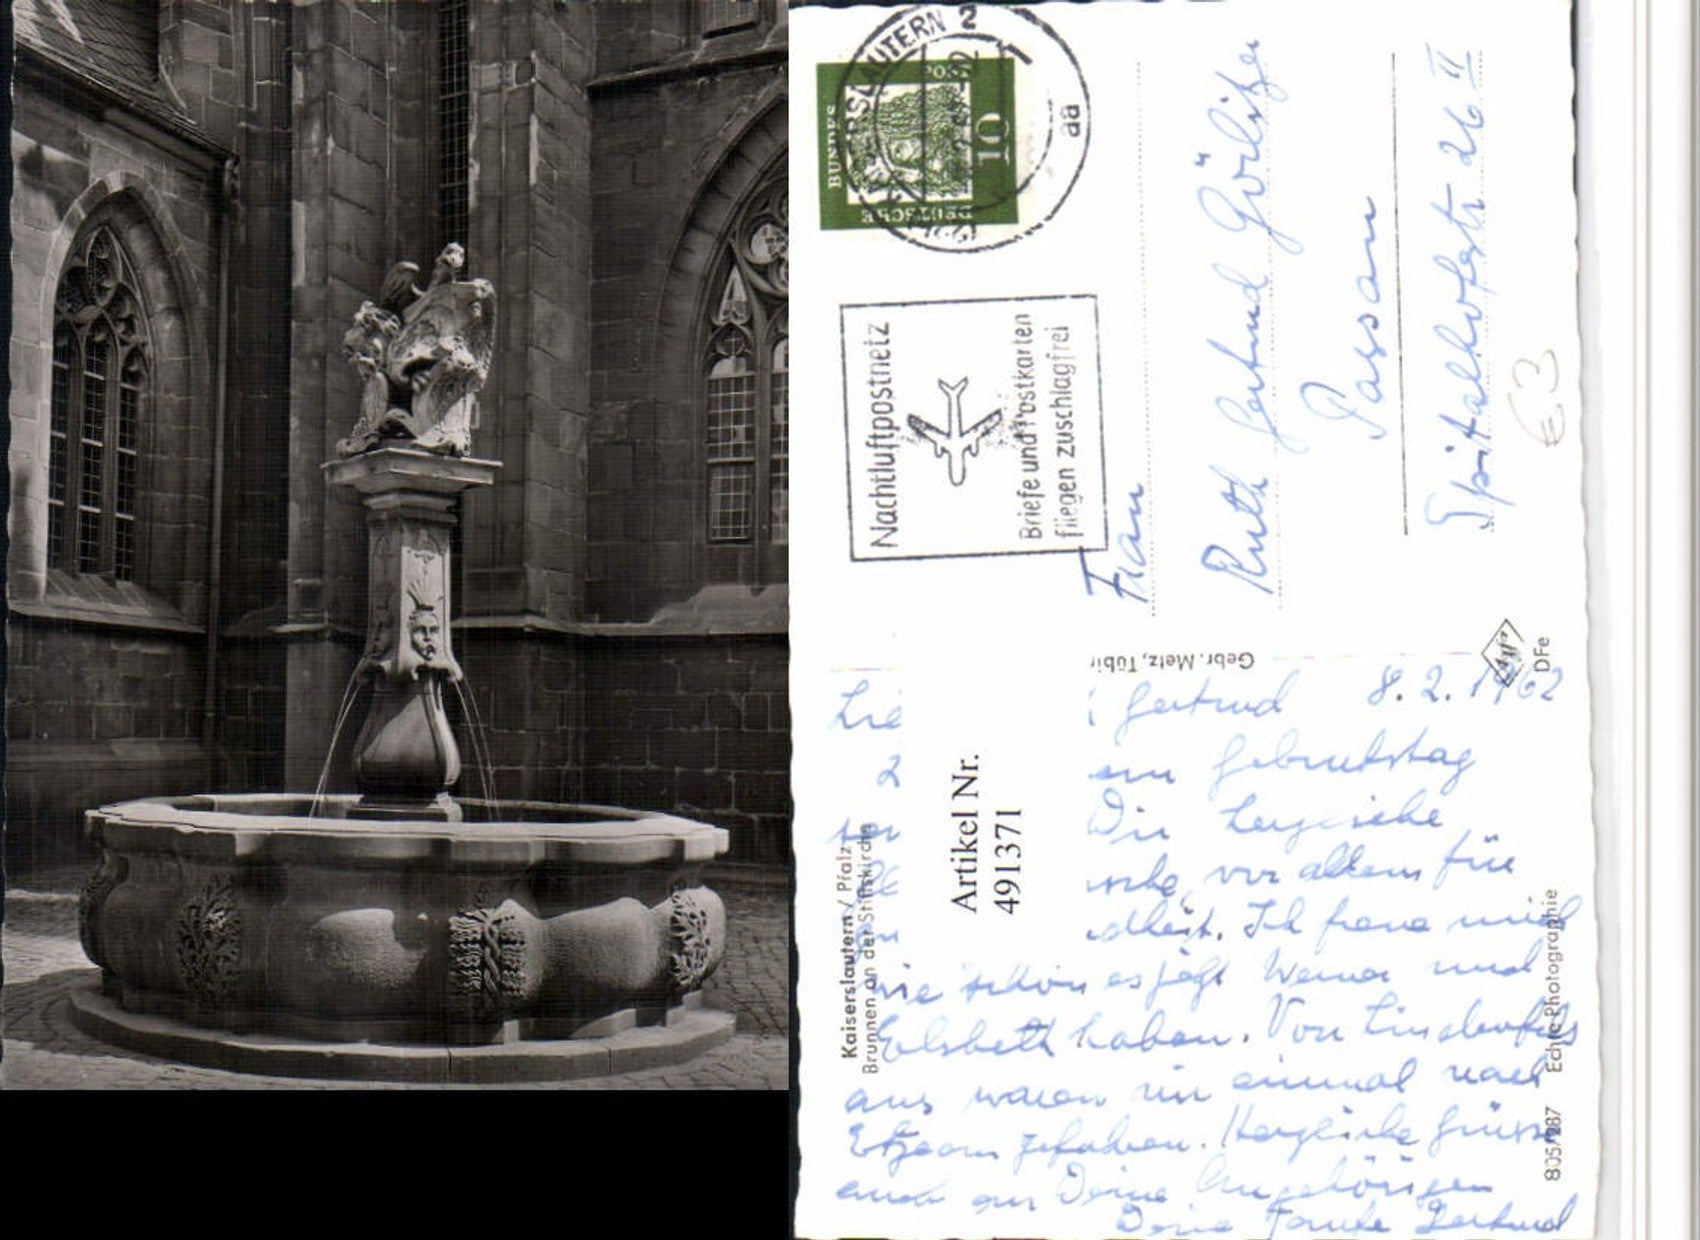 KAISERSLAUTERN 2
aa
DEUTSCHE
BUNDES
POST
10
Nachtluftpostnetz
Briefe und Postkarten
fliegen zuschlagfrei
Frau
Ruth Gertrud Görlitzer
Passau
Spitalhofstr 26 II
€ 3
Gebr. Metz, Tübi
DFe
Artikel Nr.
491371
Kaiserslautern / Pfalz
Brunnen an der Stiftskirche
805/287 Echte Photographie
Lie Gertrud 8.2.1962
2 em Geburtstag
Dir herzliche
sche, vor allem für
dheit. Ich freue mich
wie schön es jetzt Werner und
Elsbeth haben. Von Lindenfels
aus waren wir einmal nach
gefahren. Herzliche Grüsse
auch an Deine Angehörigen
Deine Tante Gertrud